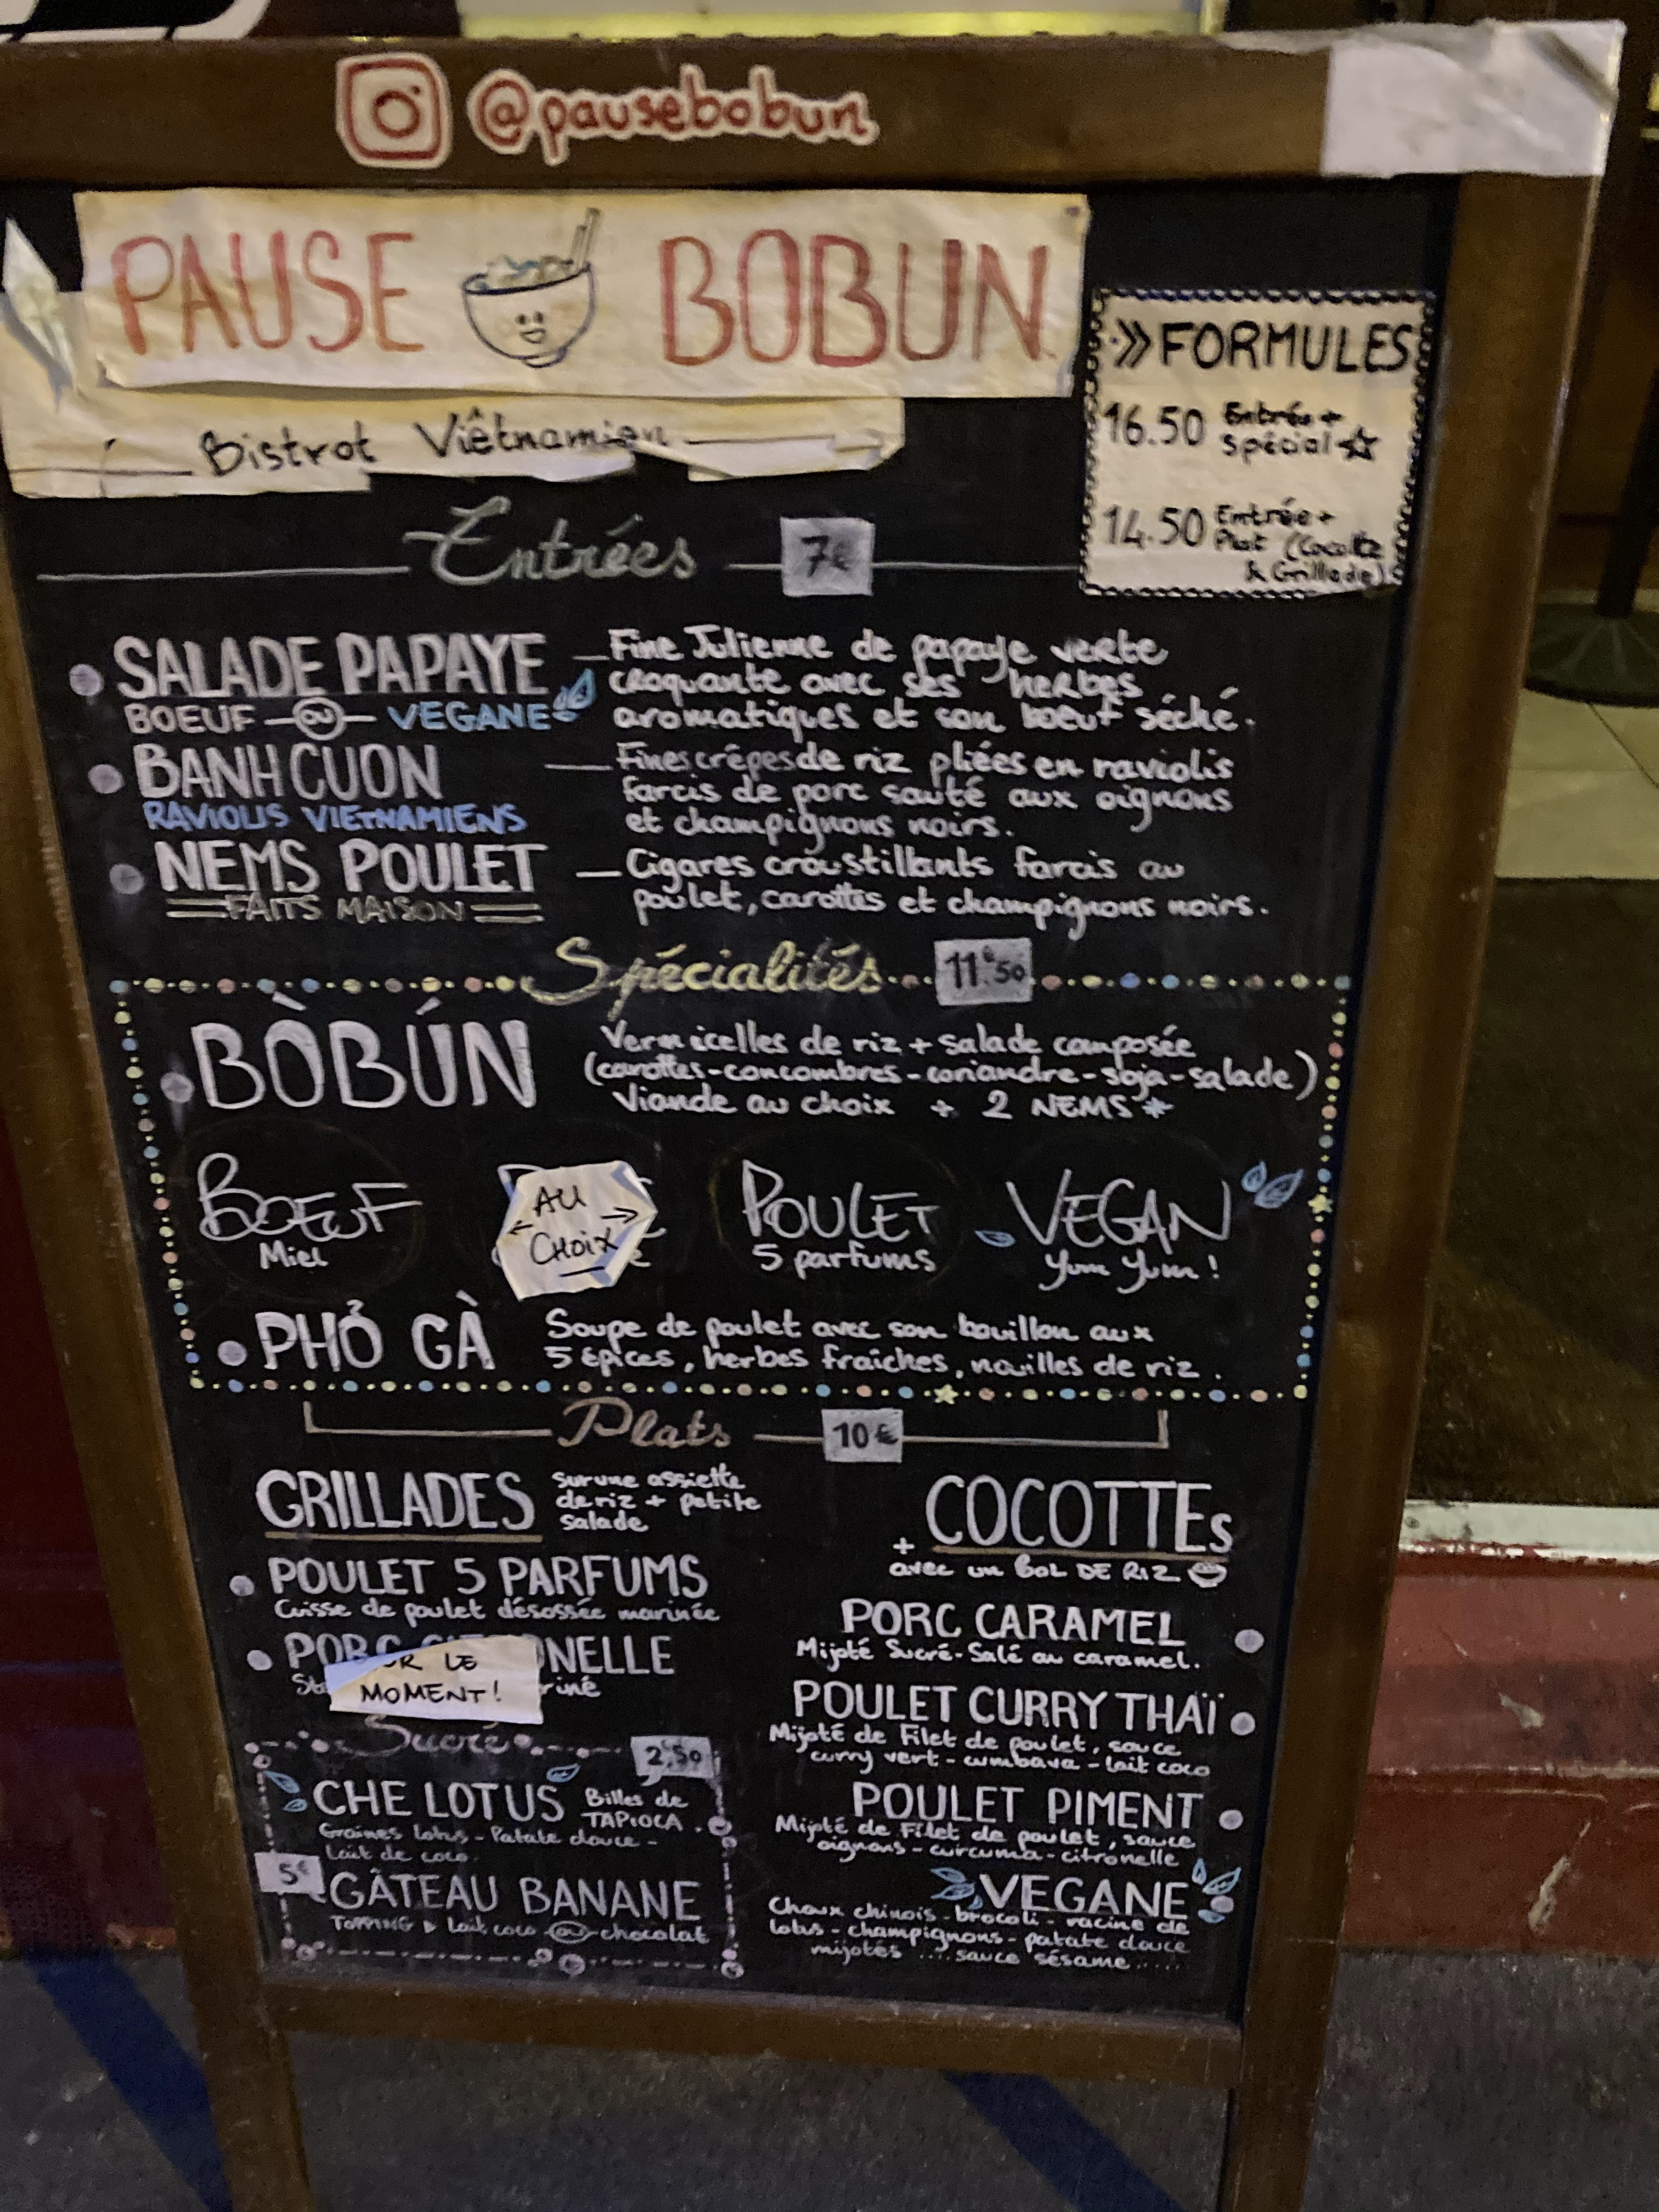 @pausebobun
PAUSE BOBUN
Bistrot Viêtnamien
>> FORMULES
16.50 Entrée +
Spécial ☆
14.50 Entrée +
Plat (Cocotte
& Grillade)
Entrées 7€
SALADE PAPAYE
BOEUF OU VEGANE
Fine Julienne de papaye verte
croquante avec ses herbes
aromatiques et son boeuf séché.
BANH CUON
RAVIOLIS VIETNAMIENS
Fines crêpes de riz pliées en raviolis
farcis de porc sauté aux oignons
et champignons noirs.
NEMS POULET
FAITS MAISON
Cigares croustillants farcis au
poulet, carottes et champignons noirs.
Spécialités 11€50
BÒBÚN
Vermicelles de riz + salade composée
(carottes-concombres-coriandre-soja-salade)
Viande au choix + 2 NEMS *
BOEUF
Miel
AU
CHOIX
POULET
5 parfums
VEGAN
Yum Yum !
PHỞ GÀ
Soupe de poulet avec son bouillon aux
5 épices, herbes fraîches, nouilles de riz.
Plats 10€
GRILLADES
sur une assiette
de riz + petite
salade
POULET 5 PARFUMS
Cuisse de poulet désossée marinée
LE
MOMENT!
COCOTTEs
+
avec un bol DE RIZ
PORC CARAMEL
Mijoté Sucré-Salé au caramel.
POULET CURRY THAÏ
Mijoté de Filet de poulet, sauce
curry vert - cumbava - lait coco
POULET PIMENT
Mijoté de Filet de poulet, sauce
oignons - curcuma - citronelle
VEGANE
Choux chinois - brocoli - racine de
lotus - champignons - patate douce
mijotés .... sauce sésame.....
Sucré 2€50
CHE LOTUS
Billes de
TAPIOCA.
Graines lotus - Patate douce -
Lait de coco.
5€
GÂTEAU BANANE
TOPPING lait coco ou chocolat